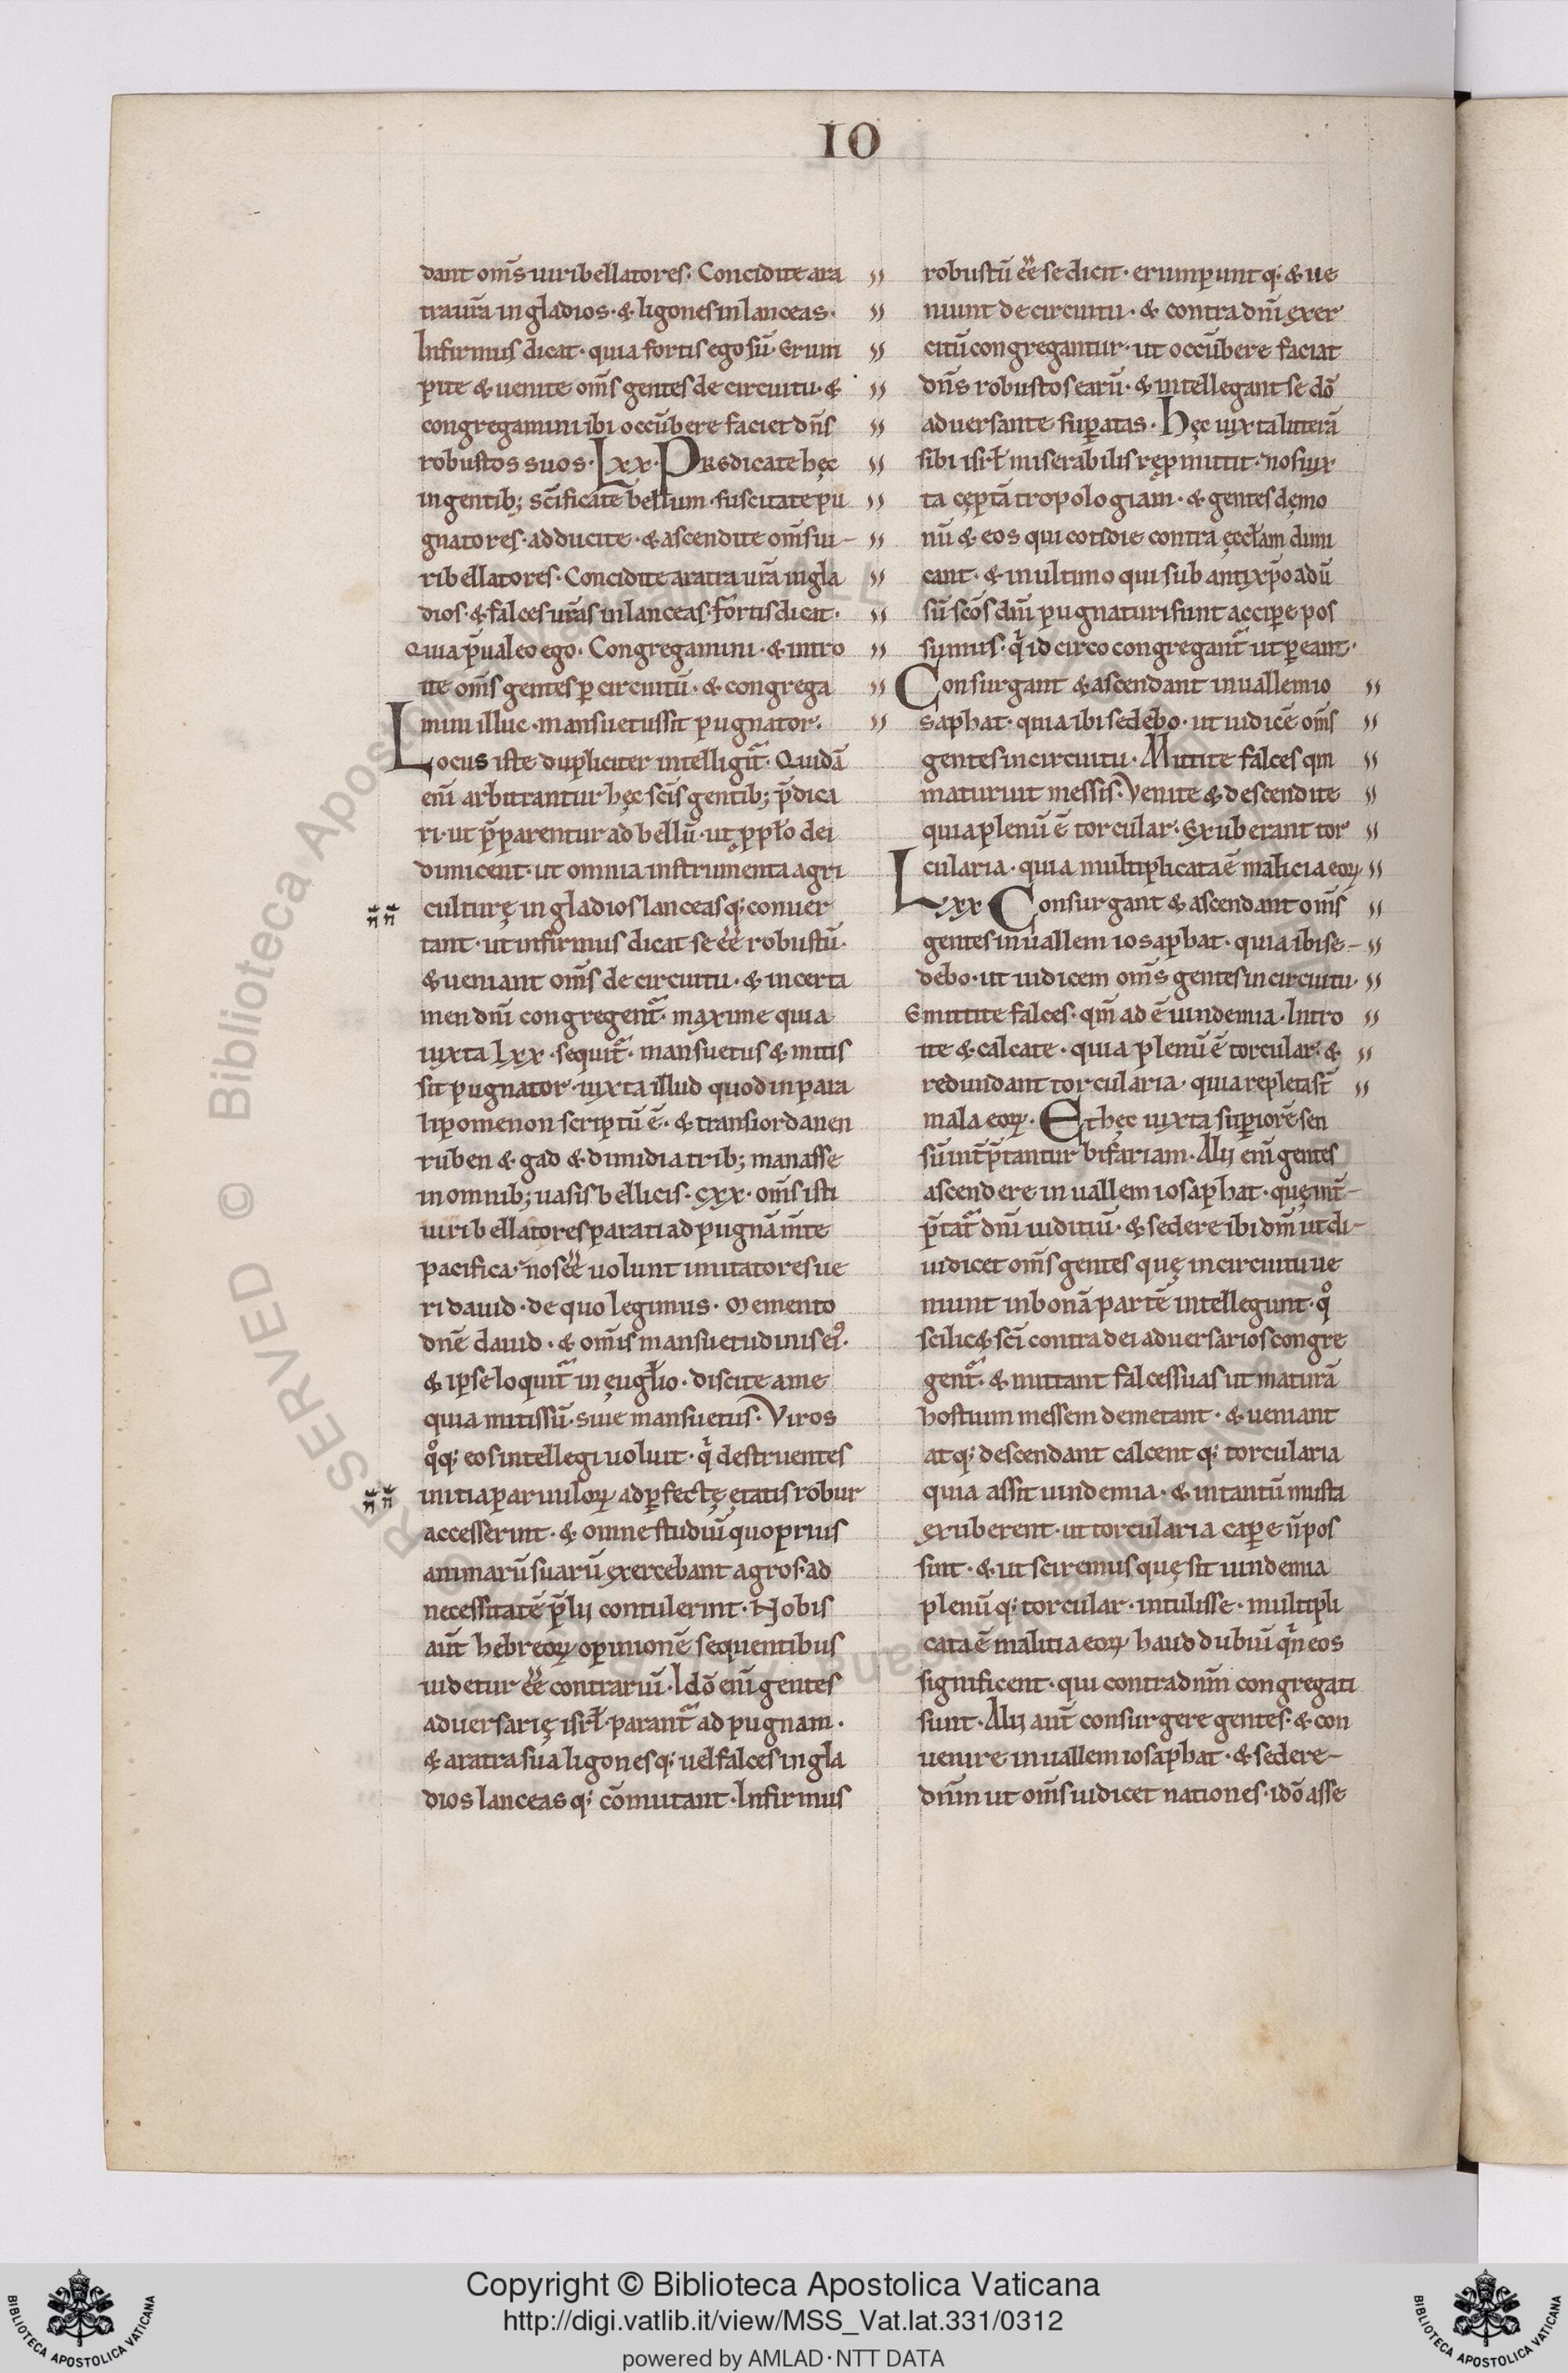 IO
dant om̄s uiri bellatores. Concidite ara
tra ur̄a in gladios. & ligones in lanceas.
Infirmus dicat. quia fortis ego sū. Erum
pite & uenite om̄s gentes de circuitu. &
congregamini ibi occūbere faciet dn̄s
robustos suos. Lxx. PRędicate hęc
in gentib; sc̄ificate bellum. suscitate pu
gnatores. adducite. & ascendite om̄s ui-
ri bellatores. Concidite aratra ur̄a in gla
dios. & falces ur̄as in lanceas. fortis dicat.
Quia p̄ualeo ego. Congregamini. & intro
ite om̄s gentes ꝑ circuitū. & congrega
mini illuc. mansuetus sit pugnator.
Locus iste dupliciter intelligit̄. Quidā
eni̅ arbitrantur hęc sc̄is gentib; p̄dica
ri. ut p̄parentur ad bellū. ut ꝓ pp̄lo dei
dimicent. ut omnia instrumenta agri
culturę in gladios lanceasq; conuer
tant. ut infirmus dicat se ee̅ robustū.
& ueniant om̄s de circuitu. & in certa
men dn̄i congregent̄. maxime quia
iuxta Lxx. sequit̄. mansuetus & mitis
sit pugnator. iuxta illud quod in para
lipomenon scriptū ē. & trans iordanen
ruben & gad & dimidia trib; manasse
in omnib; uasis bellicis. cxx. om̄s isti
uiri bellatores parati ad pugnā m̄te
pacifica. nos ee̅ uolunt imitatores ue
ri dauid. de quo legimus. Memento
dn̄e dauid. & om̄is mansuetudinis ei'.
& ipse loquit̄ in ęugl̄io. discite a me
quia mitis sū. siue mansuetus. Viros
qͦq; eos intellegi uoluit. qi destruentes
initia paruuloꝝ ad ꝑfectę ętatis robur
accesserint. & omne studiū quo prius
animarū suarū exercebant agros. ad
necessitatē p̄lii contulerint. Nobis
aut̄ hebreoꝝ opinionē sequentibus
uidetur ee̅ contrariū. Idō eni̅ gentes
aduersarię isrl̄. parant̄ ad pugnam.
& aratra sua ligonesq; uel falces in gla
dios lanceasq; cōmutant. Infirmus
robustū ee̅ se dicit. erumpuntq; & ue
niunt de circuitu. & contra dn̄i exer
citū congregantur. ut occūbere faciat
dn̄s robustos earū. & intellegant se dō
aduersante suꝑatas. Hęc iuxta litterā
sibi isrl̄ miserabilis rep̱mittit. nos iux
ta cęptā tropologiam. & gentes dęmo
nū & eos qui cotidie contra ęccl̄am dimi
cant. & in ultimo qui sub antixp̄o adū
sū sc̄os dn̄i pugnaturi sunt acciꝑe pos
sumus. qi idcirco congregant̄ ut ꝑeant.
Consurgant & ascendant in uallem io
saphat. quia ibi sedebo. ut iudicē om̄s
gentes in circuitu. Mittite falces qm̄
maturuit messis. Venite & descendite
quia plenū ē torcular. Exuberant tor
cularia. quia multiplicata ē malicia eoꝝ
Lxx Consurgant & ascendant om̄s
gentes in uallem iosaphat. quia ibi se-
debo. ut iudicem om̄s gentes in circuitu.
Emittite falces. qm̄ adē uindemia. Intro
ite & calcate. quia plenū ē torcular. &
redundant torcularia. quia repleta st̄
mala eoꝝ. Et hęc iuxta suꝑiorē sen
sū int̄p̄tantur bifariam. Alij eni̅ gentes
ascendere in uallem iosaphat. quę int̄-
p̄tat̄ dn̄i iuditiū. & sedere ibi dn̄m ut di-
iudicet om̄s gentes quę in circuitu ue
niunt in bonā partē intellegunt. qͦ
scilic& sc̄i contra dei aduersarios congre
gent̄. & mittant falces suas ut maturā
hostium messem demetant. & ueniant
atq; descendant calcentq; torcularia
quia assit uindemia. & in tantū musta
exuberent. ut torcularia caꝑe n̄ pos
sint. & ut sciremus quę sit uindemia
plenūq; torcular. intulisse. multipli
cata ē malitia eoꝝ haud dubiū qi̅n eos
significent. qui contra dn̄m congregati
sunt. Alij aut̄ consurgere gentes. & con
uenire in uallem iosaphat. & sedere-
dn̄m ut om̄s iudicet nationes. idō asse
RESERVED © Biblioteca Apostolica Vaticana
Copyright © Biblioteca Apostolica Vaticana
http://digi.vatlib.it/view/MSS_Vat.lat.331/0312
powered by AMLAD·NTT DATA
BIBLIOTECA APOSTOLICA VATICANA
BIBLIOTECA APOSTOLICA VATICANA